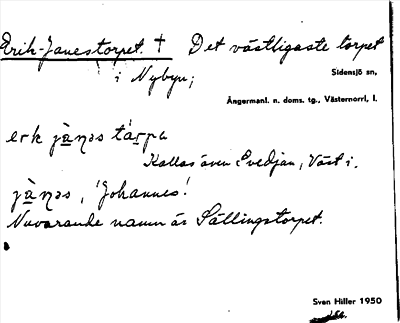 Erik-Janestorpet. † Det västligaste torpet
i Nybyn;
Sidensjö sn,
Ångermanl. n. doms. tg., Västernorrl. l.
erk jànəs tárpa
Kallas även Evedjan, Väst i.
jànəs, 'Johannes'.
Nuvarande namn är Sällingstorpet.
Sven Hiller 1950